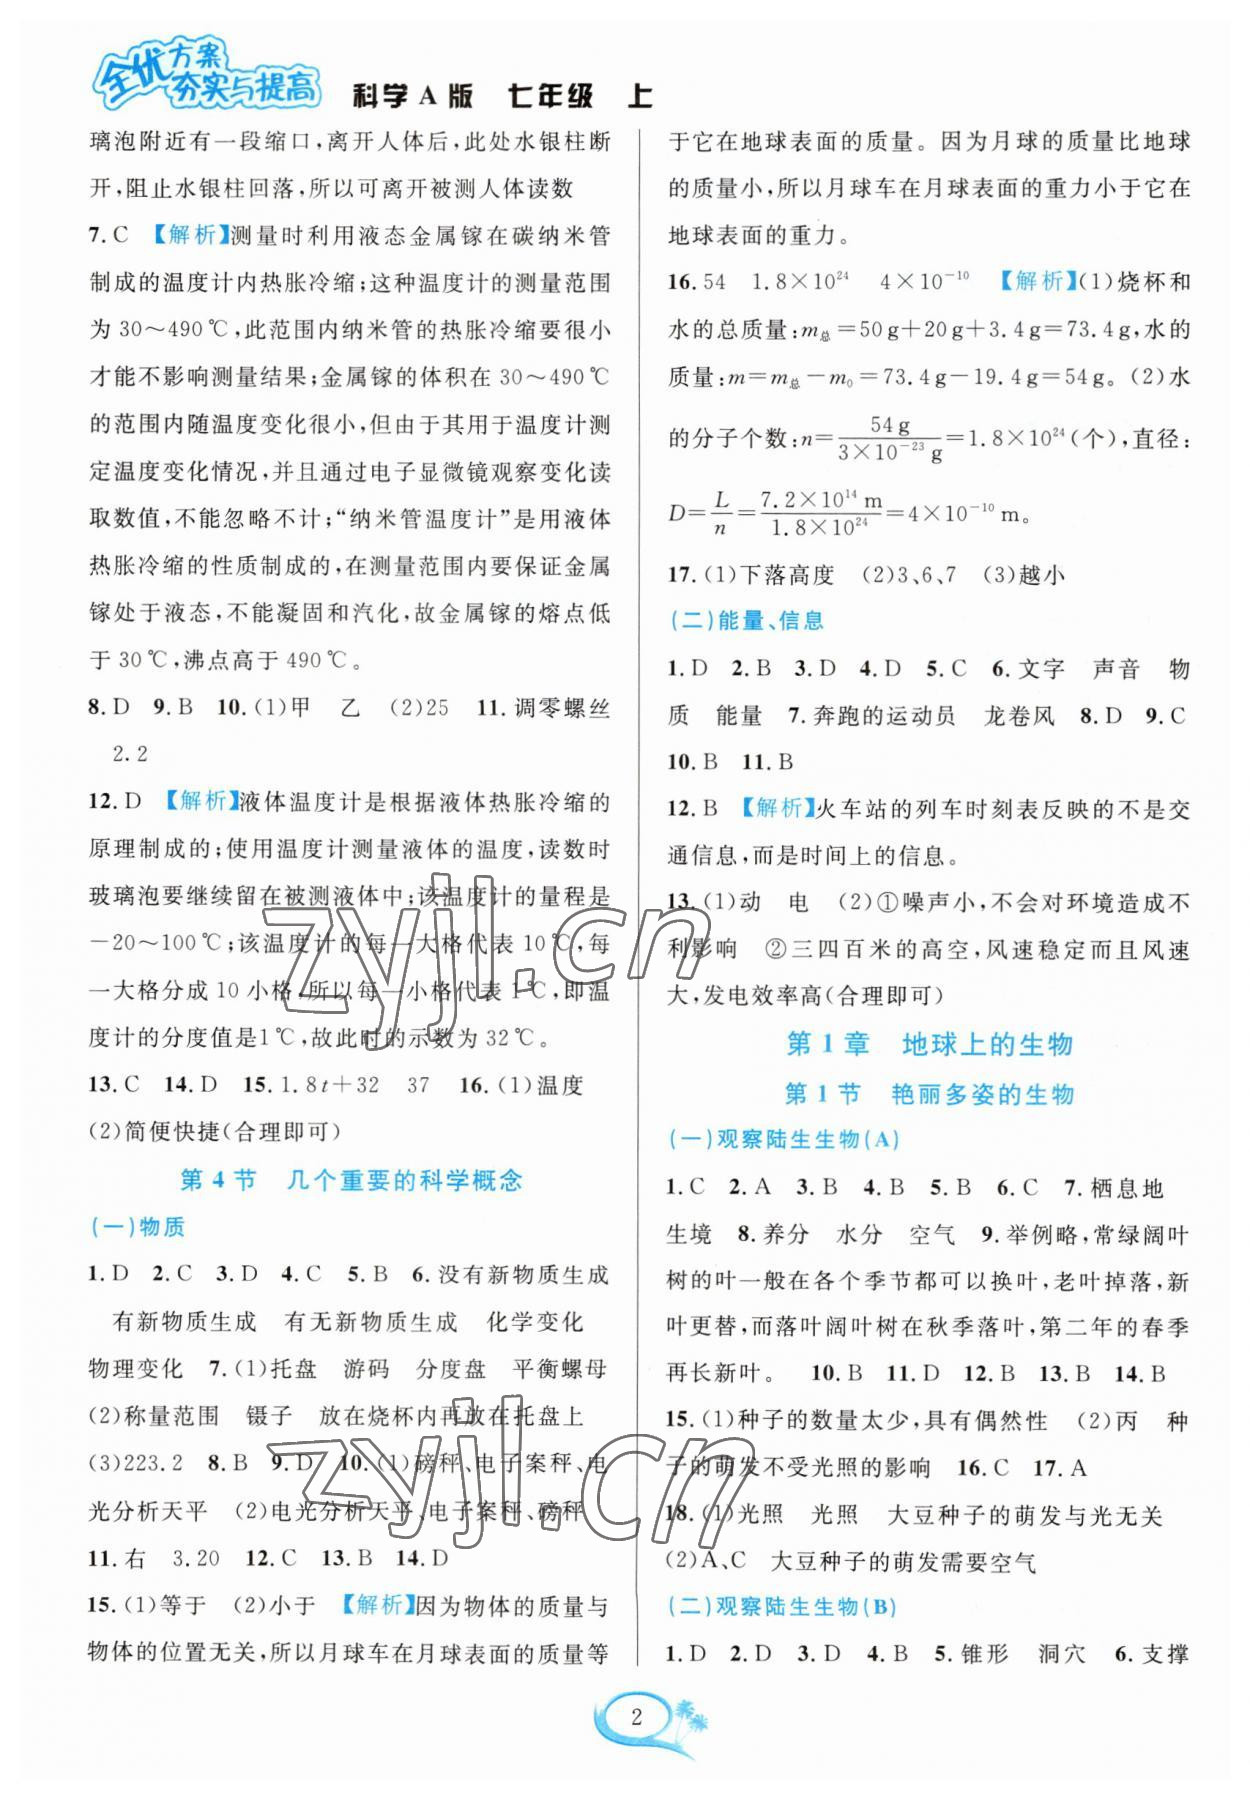 全优方案
夯实与提高
科学A版 七年级 上
璃泡附近有一段缩口,离开人体后,此处水银柱断
开,阻止水银柱回落,所以可离开被测人体读数
7.C 【解析】测量时利用液态金属镓在碳纳米管
制成的温度计内热胀冷缩;这种温度计的测量范围
为30～490℃,此范围内纳米管的热胀冷缩要很小
才能不影响测量结果;金属镓的体积在30～490℃
的范围内随温度变化很小,但由于其用于温度计测
定温度变化情况,并且通过电子显微镜观察变化读
取数值,不能忽略不计;“纳米管温度计”是用液体
热胀冷缩的性质制成的,在测量范围内要保证金属
镓处于液态,不能凝固和汽化,故金属镓的熔点低
于30℃,沸点高于490℃。
8.D 9.B 10.(1)甲 乙 (2)25 11.调零螺丝
2.2
12.D 【解析】液体温度计是根据液体热胀冷缩的
原理制成的;使用温度计测量液体的温度,读数时
玻璃泡要继续留在被测液体中;该温度计的量程是
－20～100℃;该温度计的每一大格代表10℃,每
一大格分成10小格,所以每一小格代表1℃,即温
度计的分度值是1℃,故此时的示数为32℃。
13.C 14.D 15.1.8t＋32 37 16.(1)温度
(2)简便快捷(合理即可)
第4节 几个重要的科学概念
(一)物质
1.D 2.C 3.D 4.C 5.B 6.没有新物质生成
有新物质生成 有无新物质生成 化学变化
物理变化 7.(1)托盘 游码 分度盘 平衡螺母
(2)称量范围 镊子 放在烧杯内再放在托盘上
(3)223.2 8.B 9.D 10.(1)磅秤、电子案秤、电
光分析天平 (2)电光分析天平、电子案秤、磅秤
11.右 3.20 12.C 13.B 14.D
15.(1)等于 (2)小于 【解析】因为物体的质量与
物体的位置无关,所以月球车在月球表面的质量等
于它在地球表面的质量。因为月球的质量比地球
的质量小,所以月球车在月球表面的重力小于它在
地球表面的重力。
16.54 1.8×10²⁴ 4×10⁻¹⁰ 【解析】(1)烧杯和
水的总质量:m总＝50g＋20g＋3.4g＝73.4g,水的
质量:m＝m总－m₀＝73.4g－19.4g＝54g。(2)水
的分子个数:n＝54g/(3×10⁻²³g)＝1.8×10²⁴(个),直径:
D＝L/n＝(7.2×10¹⁴m)/(1.8×10²⁴)＝4×10⁻¹⁰m。
17.(1)下落高度 (2)3、6、7 (3)越小
(二)能量、信息
1.D 2.B 3.D 4.D 5.C 6.文字 声音 物
质 能量 7.奔跑的运动员 龙卷风 8.D 9.C
10.B 11.B
12.B 【解析】火车站的列车时刻表反映的不是交
通信息,而是时间上的信息。
13.(1)动 电 (2)①噪声小,不会对环境造成不
利影响 ②三四百米的高空,风速稳定而且风速
大,发电效率高(合理即可)
第1章 地球上的生物
第1节 艳丽多姿的生物
(一)观察陆生生物(A)
1.C 2.A 3.B 4.B 5.B 6.C 7.栖息地
生境 8.养分 水分 空气 9.举例略,常绿阔叶
树的叶一般在各个季节都可以换叶,老叶掉落,新
叶更替,而落叶阔叶树在秋季落叶,第二年的春季
再长新叶。 10.B 11.D 12.B 13.B 14.B
15.(1)种子的数量太少,具有偶然性 (2)丙 种
子的萌发不受光照的影响 16.C 17.A
18.(1)光照 光照 大豆种子的萌发与光无关
(2)A、C 大豆种子的萌发需要空气
(二)观察陆生生物(B)
1.D 2.D 3.B 4.B 5.锥形 洞穴 6.支撑
2
zyjl.cn
zyjl.cn